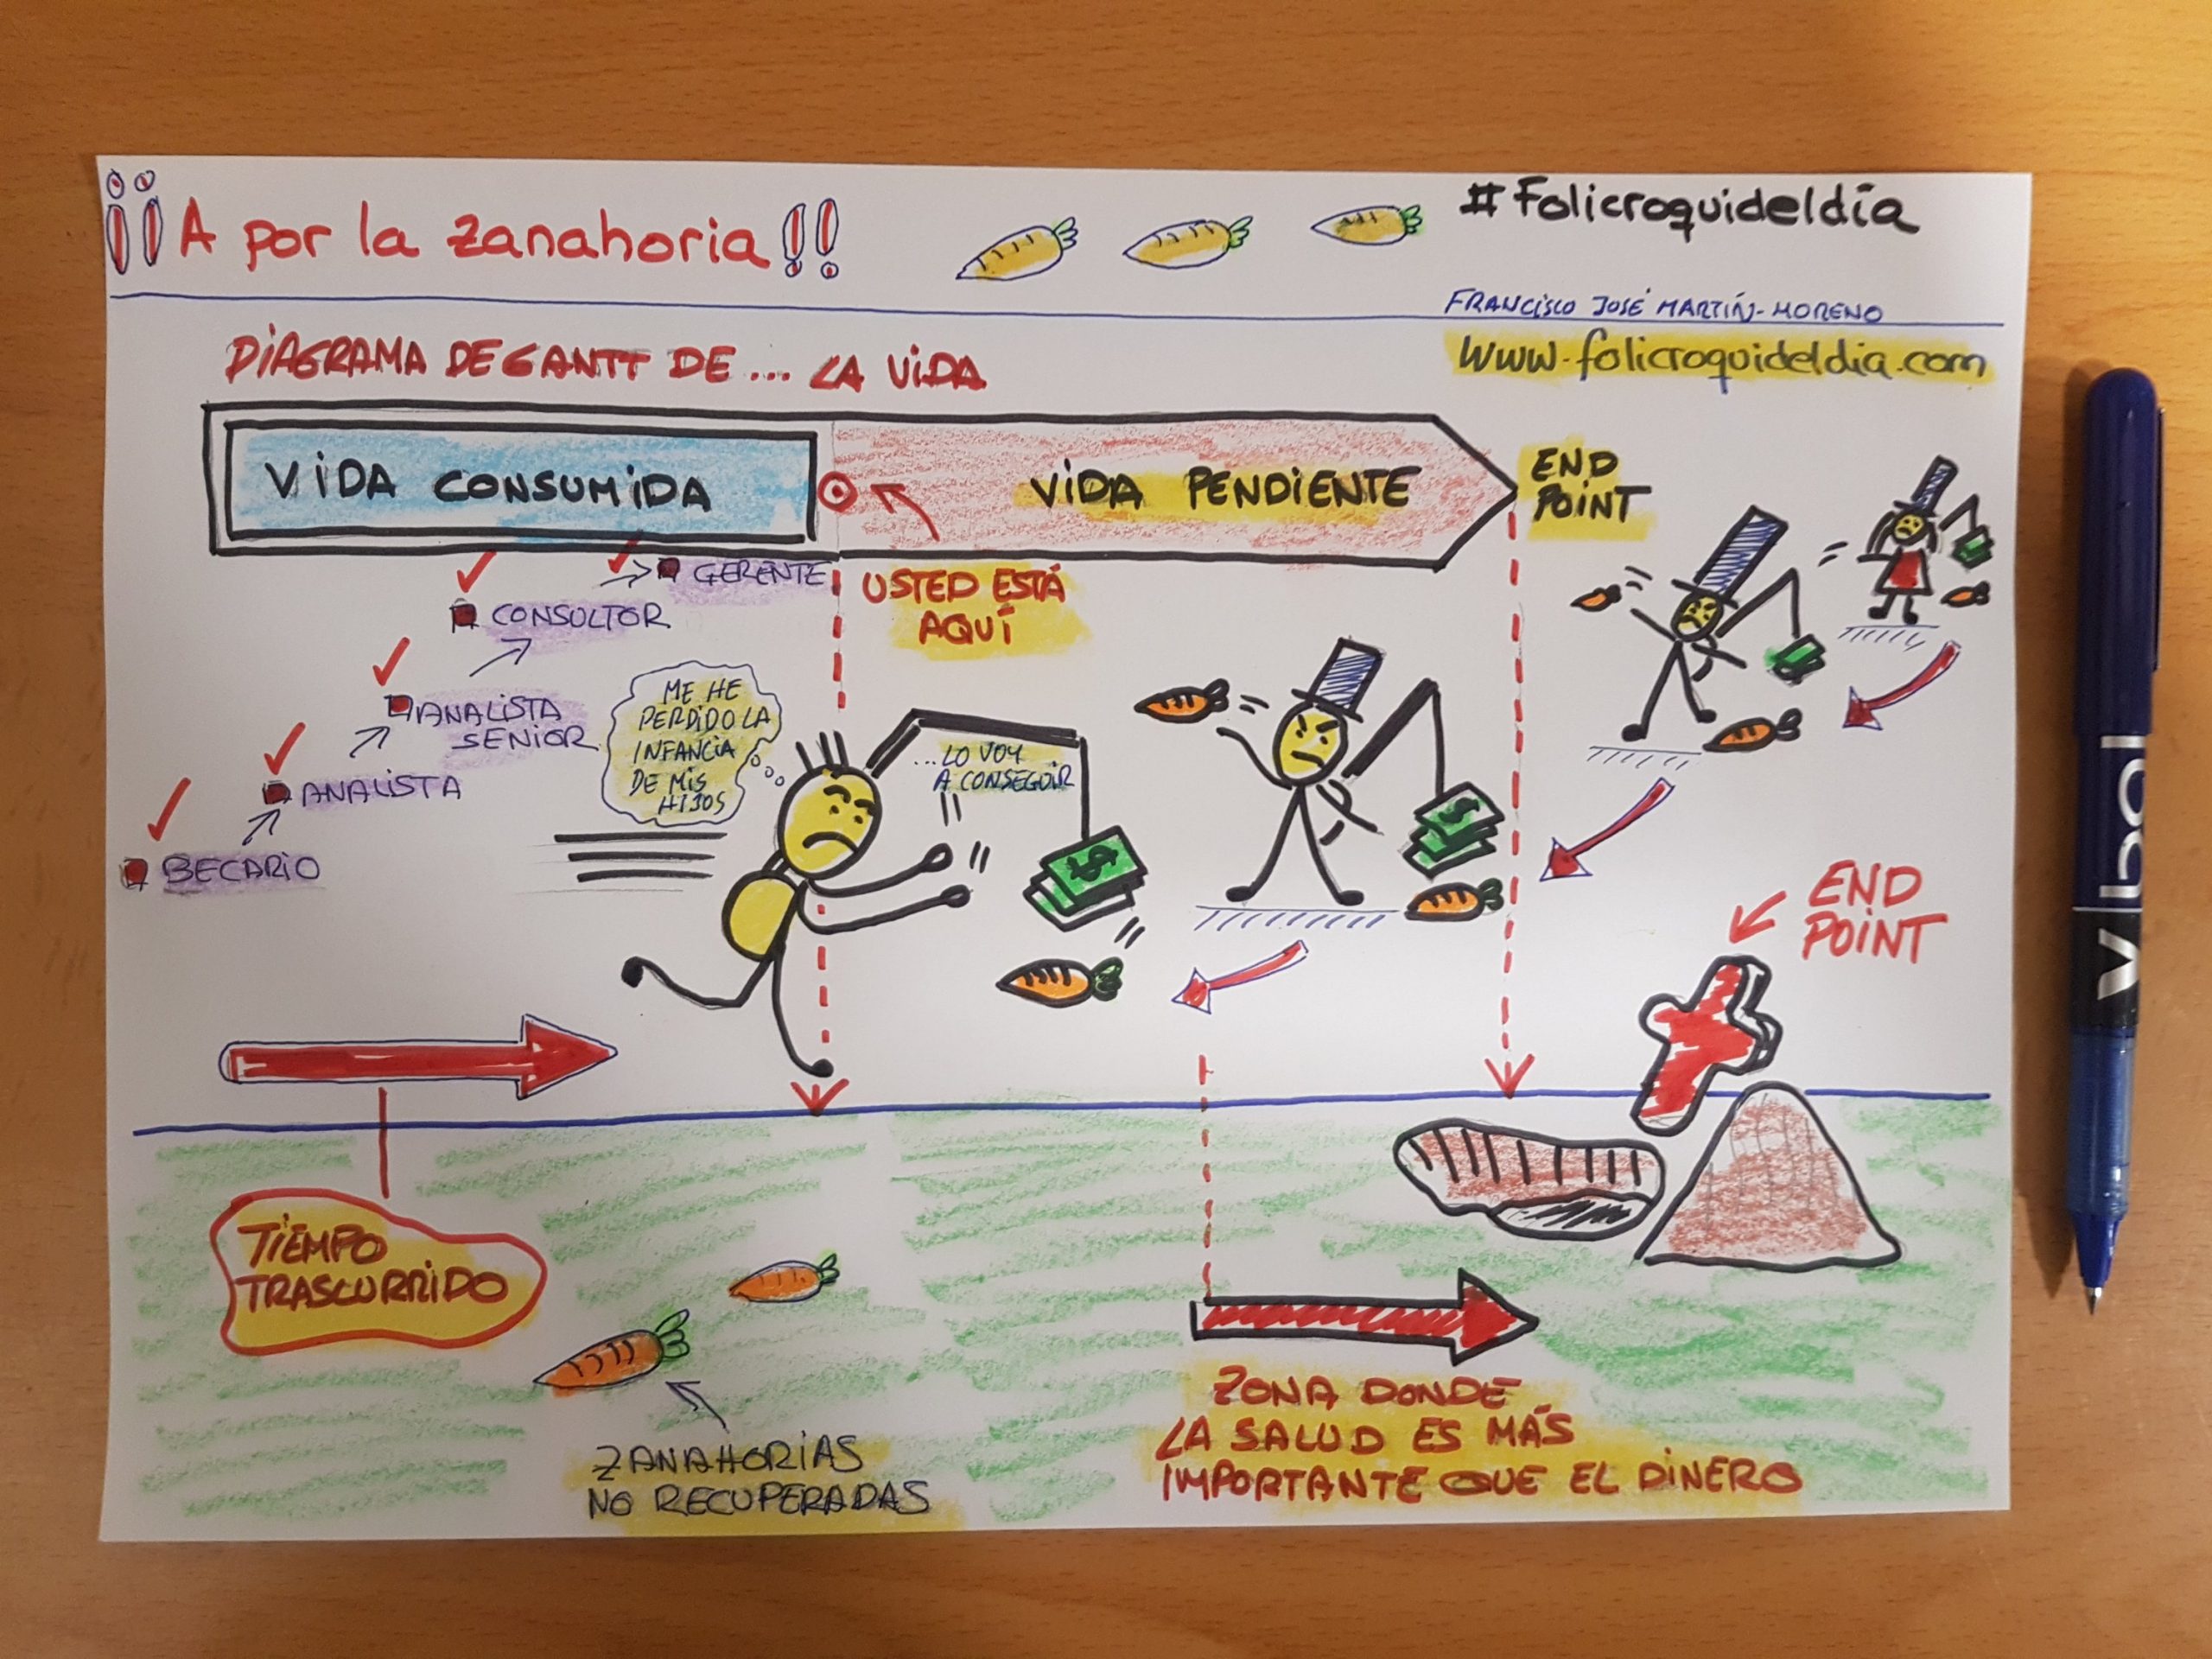 ¡¡A por la zanahoria!!
#Folicroquideldía
FRANCISCO JOSÉ MARTÍN-MORENO
www.folicroquideldia.com
DIAGRAMA DE GANTT DE... LA VIDA
VIDA CONSUMIDA
VIDA PENDIENTE
END
POINT
USTED ESTÁ
AQUÍ
GERENTE
CONSULTOR
ANALISTA
SENIOR
ANALISTA
BECARIO
ME HE
PERDIDO LA
INFANCIA
DE MIS
HIJOS
...LO VOY
A CONSEGUIR
$
$
END
POINT
TIEMPO
TRASCURRIDO
ZANAHORIAS
NO RECUPERADAS
ZONA DONDE
LA SALUD ES MÁS
IMPORTANTE QUE EL DINERO
V ball